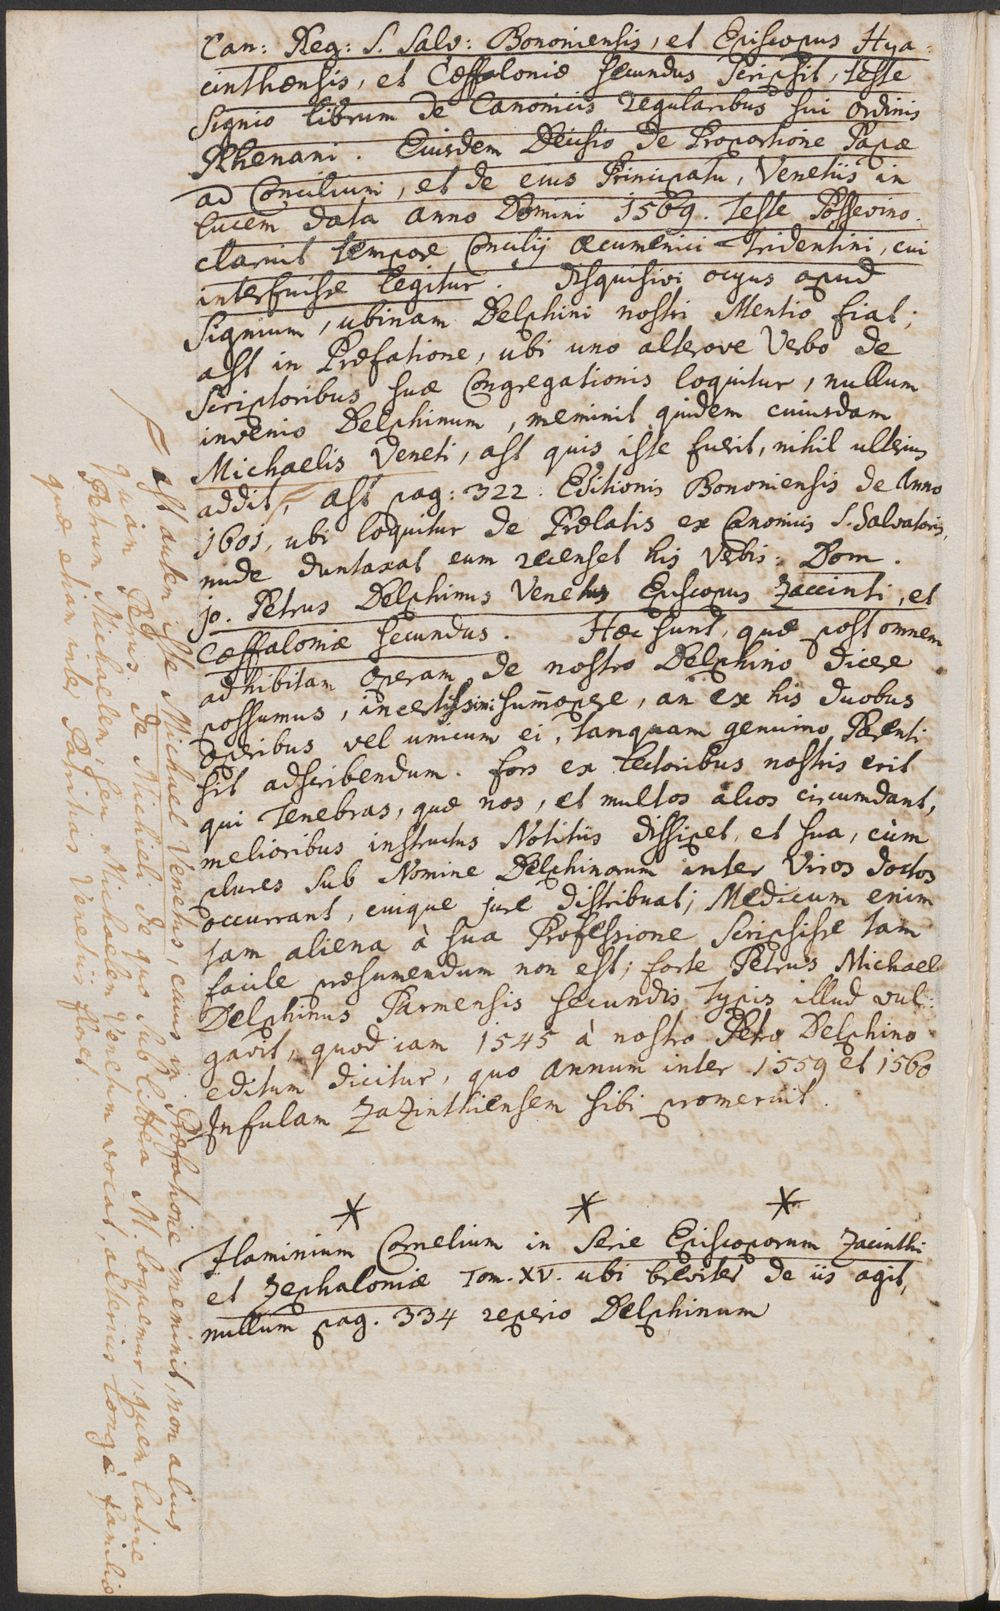 Can: Reg: S. Salv: Bononiensis, et Episcopus Hya-
cinthensis, et Cæffaloniæ secundus scripsit, teste
Signio librum de Canonicis regularibus sui Ordinis
Rhenani. Eiusdem Decisio de Proportione Papæ
ad Concilium, et de eius Principatu, Venetiis in
lucem data anno Domini 1569. teste Possevino.
claruit tempore Concilij œcumenici Tridentini, cui
interfuisse legitur. Disquisivi ocyus apud
Signium, ubinam Delphini nostri Mentio fiat;
ast in Præfatione, ubi uno alterove Verbo de
Scriptoribus suæ Congregationis loquitur, nullum
invenio Delphinum, meminit quidem cuiusdam
Michaelis Veneti, ast quis iste fuerit, nihil ulterius
addit, ast pag: 322. Editionis Bononiensis de Anno
1601, ubi loquitur de Prælatis ex Canonicis S. Salvatoris,
nude duntaxat eum recenset his Verbis: Dom.
jo. Petrus Delphinus Venetus Episcopus Zaccinti, et
Cæffaloniæ secundus. Hæc sunt, quæ post omnem
adhibitam operam de nostro Delphino dicere
possumus, incertissimi summopere, an ex his duobus
Operibus vel unicum ei, tanquam genuino Parenti
sit adscribendum. fors ex Lectoribus nostris erit
qui Tenebras, quæ nos, et multos alios circumdant,
melioribus instructus Notitiis dissipet, et sua, cùm
plures sub Nomine Delphinorum inter Viros doctos
occurrant, cuique jure distribuat; Medicum enim
tam aliena à sua Professione scripsisse tam
facile præsumendum non est; forte Petrus Michael
Delphinus Parmensis secundis Typis illud vul-
gavit, quod iam 1545 à nostro Petro Delphino
editum dicitur, quo annum inter 1559 et 1560
Infulam Zazinthiensem sibi promeruit.
* * *
Flaminium Cornelium in Serie Episcoporum Zacinthi
et Zephaloniæ Tom. XV. ubi breviter de iis agit,
nullum pag. 334 reperio Delphinum
est autem iste Michael Venetus, cuius in Præfatione meminit, non alius
quàm Petrus de Michieli de quo sub littera M. loquemur, quem latine
Petrum Michaelem, seu Michaelem Venetum vocat, alterius longè familiæ
quæ etiam inter Patritias Venetiis floret.